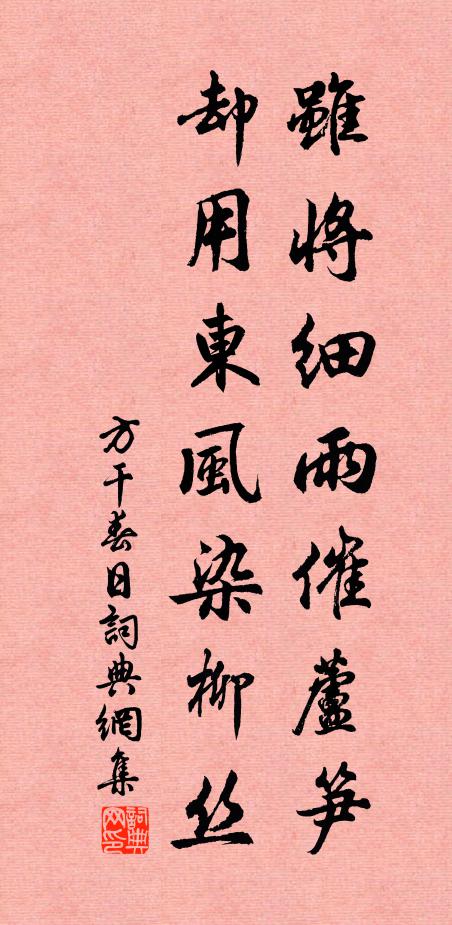 雖將細雨催蘆笋
却用東風染柳丝
方干春日詞典網集
詞典网印